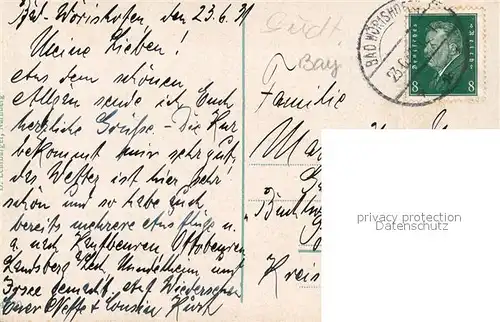 Bad-Wörishofen, den 23.6.31
Meine Lieben!
Aus dem schönen
Allgäu sende ich Euch
herzliche Grüße. Die Kur
bekommt mir sehr gut,
das Wetter ist hier sehr
schön und so habe auch
bereits mehrere Ausflüge u.
a. nach Kaufbeuren, Ottobeuren,
Landsberg Lech, Mindelheim und
Irsee gemacht. Auf Wiedersehen
Euer Neffe & Cousin Kurt
Bay
Familie
Kreis
BAD WÖRISHOFEN
Deutsches Reich
8 8
privacy protection
www.oldthing.net